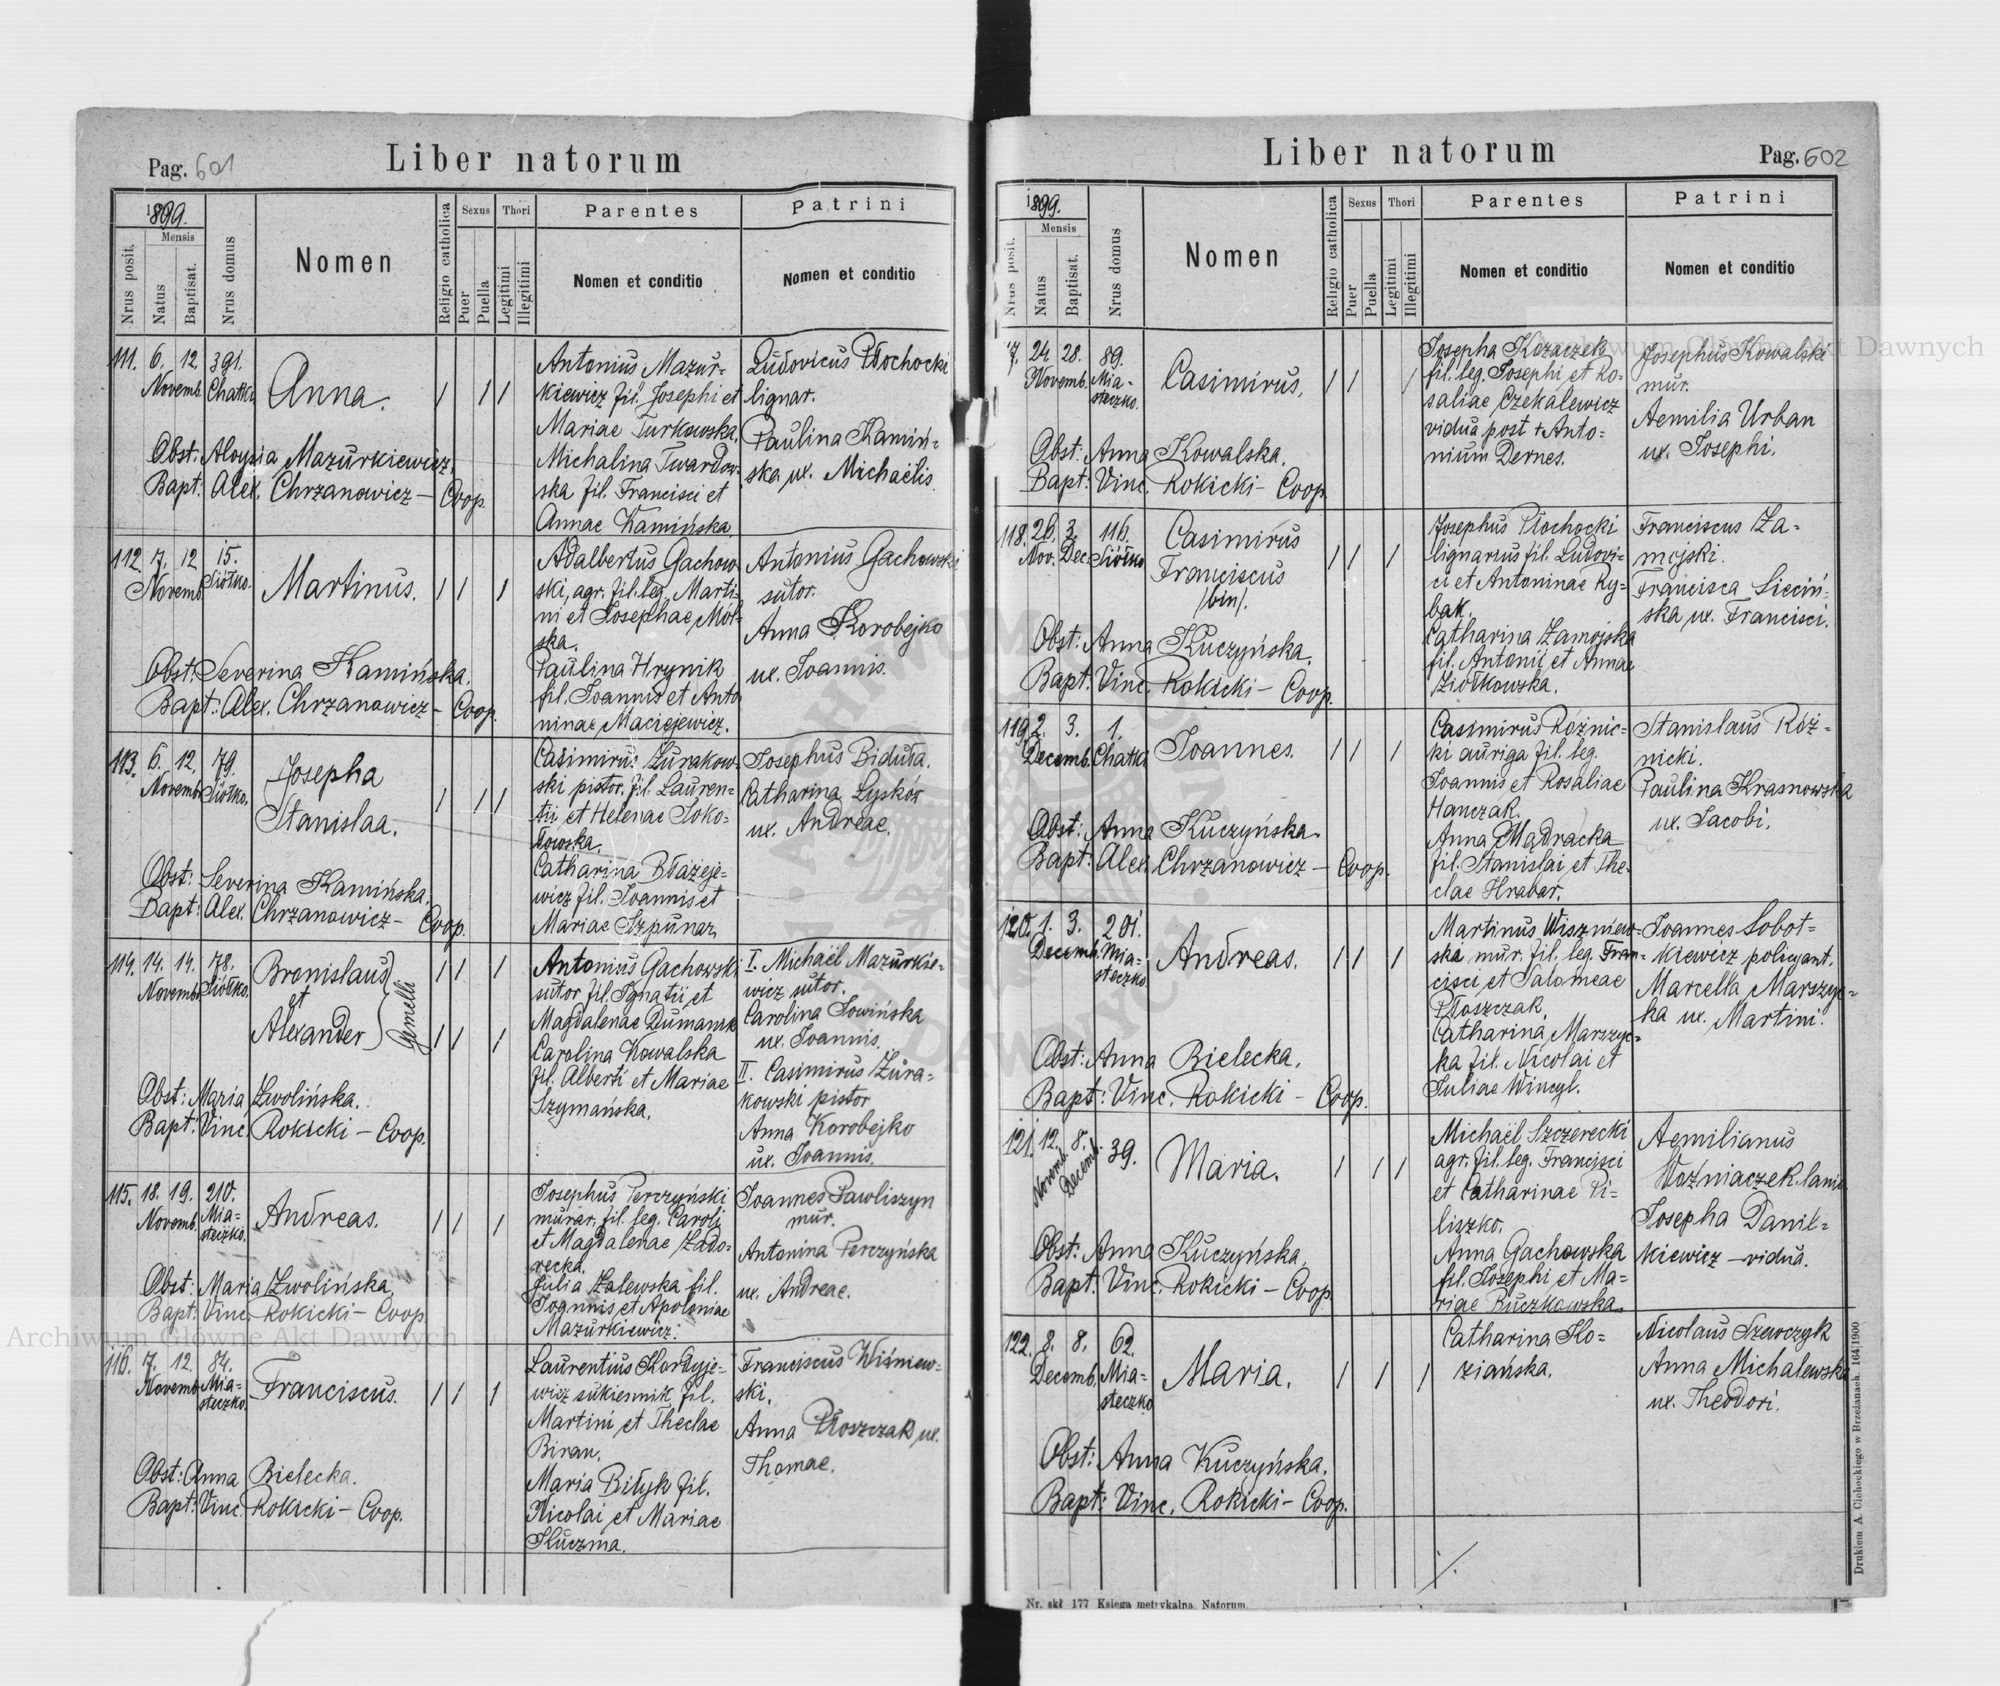 Pag. 601
Liber natorum
1899.
Mensis
Nrus posit.
Natus
Baptisat.
Nrus domus
Nomen
Religio catholica
Sexus
Puer
Puella
Thori
Legitimi
Illegitimi
Parentes
Nomen et conditio
Patrini
Nomen et conditio
111. 6. 12. 391.
Novemb. Chatki
Anna.
Obst: Aloysia Mazurkiewicz.
Bapt: Alex. Chrzanowicz – Coop.
Antonius Mazur-
kiewicz fil. Josephi et
Mariae Turkowska.
Michalina Twardow-
ska fil. Francisci et
Annae Kamińska.
Ludovicus Płochocki
lignar.
Paulina Kamiń-
ska ux. Michaëlis.
112. 7. 12. 15.
Novemb. Siółko.
Martinus.
Obst: Severina Kamińska.
Bapt: Alex. Chrzanowicz – Coop.
Adalbertus Gachow-
ski, agr. fil. leg. Marti-
ni et Josephae Mól-
ska.
Paulina Hrynik
fil. Joannis et Anto-
ninae Maciejewicz.
Antonius Gachowski
sutor.
Anna Korobejko
ux. Joannis.
113. 6. 12. 79.
Novemb. Siółko.
Josepha
Stanislaa.
Obst: Severina Kamińska.
Bapt: Alex. Chrzanowicz – Coop.
Casimirus Żurakow-
ski pistor. fil. Lauren-
tii et Helenae Soko-
łowska.
Catharina Błażeje-
wicz fil. Joannis et
Mariae Szpunar.
Josephus Biduła.
Catharina Łysków
ux. Andreae.
114. 14. 14. 78.
Novemb. Siółko.
Bronislaus
et
Alexander
Gemelli
Obst: Maria Zwolińska.
Bapt: Vinc. Rokicki – Coop.
Antonius Gachowski
sutor fil. Ignatii et
Magdalenae Dumansk
Carolina Kowalska
fil. Alberti et Mariae
Szymańska.
I. Michaël Mazurkie-
wicz sutor.
Carolina Sowińska
ux. Joannis.
II. Casimirus Żura-
kowski pistor
Anna Korobejko
ux. Joannis.
115. 18. 19. 210.
Novemb. Mia-
steczko.
Andreas.
Obst: Maria Zwolińska.
Bapt: Vinc. Rokicki – Coop.
Josephus Perczyński
murar. fil. leg. Caroli
et Magdalenae Zado-
recka.
Julia Zalewska fil.
Joannis et Apoloniae
Mazurkiewicz.
Joannes Pawliszyn
mur.
Antonina Perczyńska
ux. Andreae.
116. 7. 12. 84.
Novemb. Mia-
steczko.
Franciscus.
Obst: Anna Bielecka.
Bapt: Vinc. Rokicki – Coop.
Laurentius Kordyje-
wicz sukiennik fil.
Martini et Theclae
Biran.
Maria Biłyk fil.
Nicolai et Mariae
Kuczma.
Franciscus Wiśniew-
ski.
Anna Płoszczak ux.
Thomae.
Liber natorum
Pag. 602
1899.
Mensis
Nrus posit.
Natus
Baptisat.
Nrus domus
Nomen
Religio catholica
Sexus
Puer
Puella
Thori
Legitimi
Illegitimi
Parentes
Nomen et conditio
Patrini
Nomen et conditio
7. 24. 28. 89.
Novemb. Mia-
steczko.
Casimirus.
Obst: Anna Kowalska.
Bapt: Vinc. Rokicki – Coop.
Josepha Kozaczek
fil. leg. Josephi et Ro-
saliae Czekalewicz
vidua post + Anto-
nium Dernes.
Josephus Kowalski
mur.
Aemilia Urban
ux. Josephi.
118. 26. 3. 116.
Nov. Dec. Siółko
Casimirus
Franciscus
/bin/.
Obst: Anna Kuczyńska.
Bapt: Vinc. Rokicki – Coop.
Josephus Płochocki
lignarius fil. Ludovi-
ci et Antoninae Ry-
bak.
Catharina Zamojska
fil. Antonii et Annae
Ziółkowska.
Franciscus Za-
mojski.
Francisca Sieciń-
ska ux. Francisci.
119. 2. 3. 1.
Decemb. Chatki
Joannes.
Obst: Anna Kuczyńska.
Bapt: Alex. Chrzanowicz – Coop.
Casimirus Różnic-
ki auriga fil. leg.
Joannis et Rosaliae
Hanczak.
Anna Mądracka
fil. Stanislai et The-
clae Hrabar.
Stanislaus Róż-
nicki.
Paulina Krasnowska
ux. Jacobi.
120. 1. 3. 201.
Decemb. Mia-
steczko
Andreas.
Obst: Anna Bielecka.
Bapt: Vinc. Rokicki – Coop.
Martinus Wiszniew-
ski mur. fil. leg. Fran-
cisci et Salomeae
Płoszczak.
Catharina Marszyc-
ka fil. Nicolai et
Juliae Wincyl.
Joannes Sobot-
kiewicz policyant.
Marcella Marszyc-
ka ux. Martini.
121. 12. 8. 39.
Novemb. Decemb.
Maria.
Obst: Anna Kuczyńska.
Bapt: Vinc. Rokicki – Coop.
Michaël Szczerecki
agr. fil. leg. Francisci
et Catharinae Pi-
liszko.
Anna Gachowska
fil. Josephi et Ma-
riae Buczkowska.
Aemilianus
Woźniaczek lanio
Josepha Danił-
kiewicz – vidua.
122. 8. 8. 62.
Decemb. Mia-
steczko
Maria.
Obst: Anna Kuczyńska.
Bapt: Vinc. Rokicki – Coop.
Catharina Ko-
ziańska.
Nicolaus Szewczyk
Anna Michalewska
ux. Theodori.
Nr. skł 177 Księga metrykalna. Natorum.
Drukiem A. Cichockiego w Brzeżanach. 164|1900
Archiwum Główne Akt Dawnych
Archiwum Główne Akt Dawnych